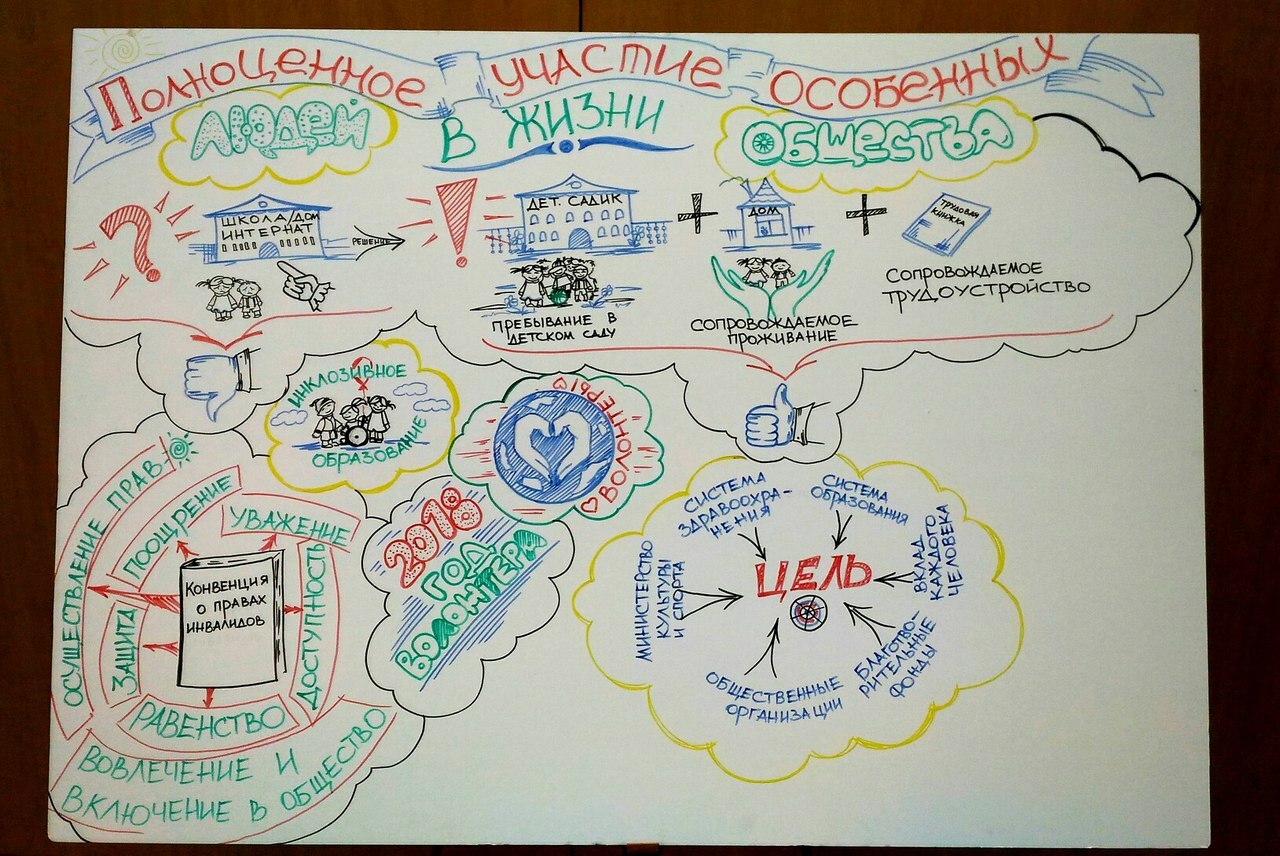 Полноценное участие особенных
людей в жизни общества
школа/дом
интернат
решение
дет. садик
дом
трудовая
книжка
пребывание в
детском саду
сопровождаемое
проживание
сопровождаемое
трудоустройство
инклозивное
образование
волонтеры
2018
год
волонтера
осуществление прав
поощрение
уважение
защита
доступность
равенство
Конвенция
о правах
инвалидов
вовлечение и
включение в общество
система
здравоохра-
нения
система
образования
министерство
культуры
и спорта
цель
вклад
каждого
человека
общественные
организации
благотво-
рительные
фонды